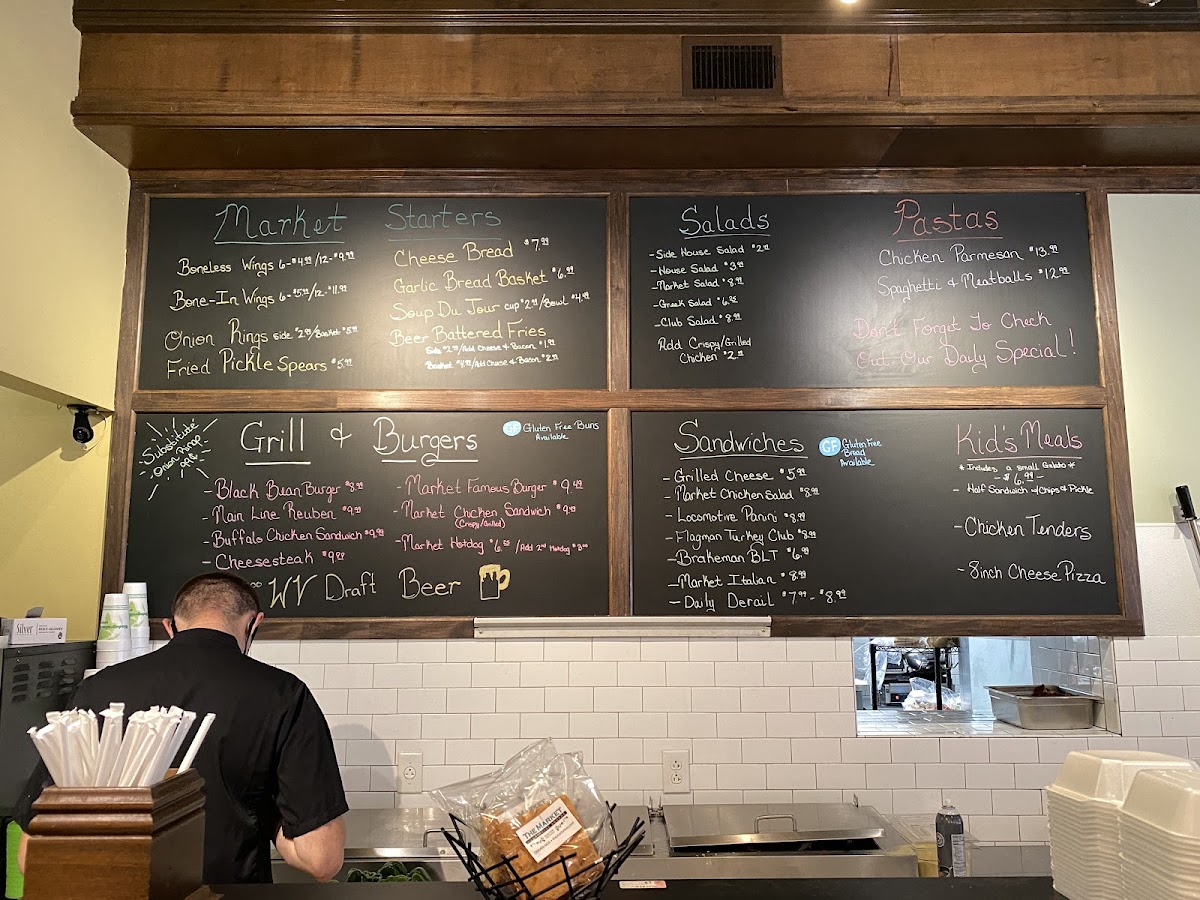 Market Starters
Boneless Wings 6-$4.99/12-$9.99
Bone-In Wings 6-$5.99/12-$11.99
Onion Rings side $2.99/Basket $5.99
Fried Pickle Spears $5.99
Cheese Bread $7.99
Garlic Bread Basket $6.99
Soup Du Jour cup $2.99/Bowl $4.99
Beer Battered Fries
Side $2.99/Add Cheese & Bacon $1.99
Basket $4.99/Add Cheese & Bacon $2.99
Salads
-Side House Salad
-House Salad $3.99
-Market Salad $8.99
-Greek Salad
-Club Salad $8.99
Add Crispy/Grilled
Chicken
Pastas
Chicken Parmesan $13.99
Spaghetti & Meatballs $12.99
Don't Forget To Check
Out Our Daily Special!
Substitute
Onion Rings
Grill & Burgers
GF Gluten Free Buns
Available
-Black Bean Burger $8.99
-Main Line Reuben $9.99
-Buffalo Chicken Sandwich $9.99
-Cheesesteak $9.99
-Market Famous Burger $9.49
-Market Chicken Sandwich $9.49
(Crispy/Grilled)
-Market Hotdog /Add 2nd Hotdog
WV Draft Beer
Sandwiches
GF Gluten Free
Bread
Available
-Grilled Cheese $5.99
-Market Chicken Salad $8.99
-Locomotive Panini $8.99
-Flagman Turkey Club $8.99
-Brakeman BLT $6.99
-Market Italian $8.99
-Daily Derail $7.99-$8.99
Kid's Meals
*Includes a small Gelato*
-$6.99-
-Half Sandwich w/Chips & Pickle
-Chicken Tenders
-8inch Cheese Pizza
Silver
THE MARKET